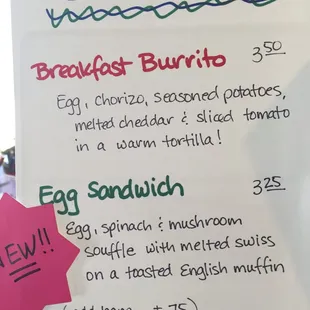 Breakfast Burrito 3.50
Egg, chorizo, seasoned potatoes,
melted cheddar & sliced tomato
in a warm tortilla!
Egg Sandwich 3.25
Egg, spinach & mushroom
souffle with melted swiss
on a toasted English muffin
NEW!!